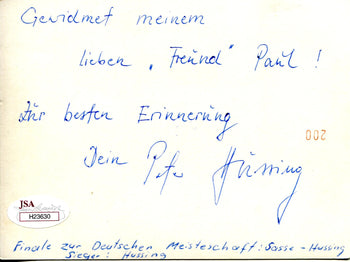 Gewidmet meinem
lieben "Freund" Paul!
Zur besten Erinnerung
200
Dein Peter Hüssing
JSA
H23630
Finale zur Deutschen Meisterschaft: Sasse - Hussing
Sieger: Hussing